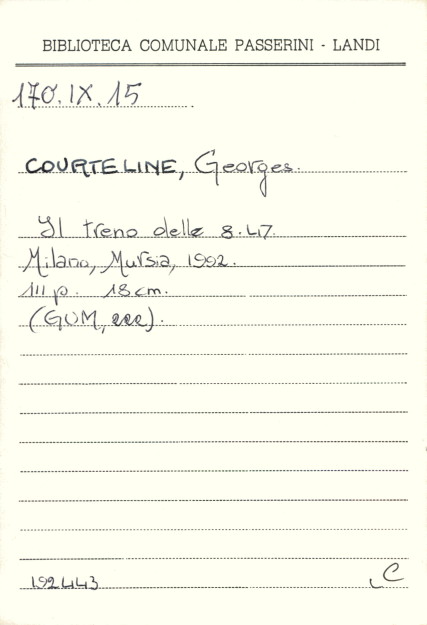 BIBLIOTECA COMUNALE PASSERINI - LANDI
170.IX.15
COURTELINE, Georges.
Il treno delle 8.47.
Milano, Mursia, 1992.
111 p. 18 cm.
(GUM, 222).
192443 C